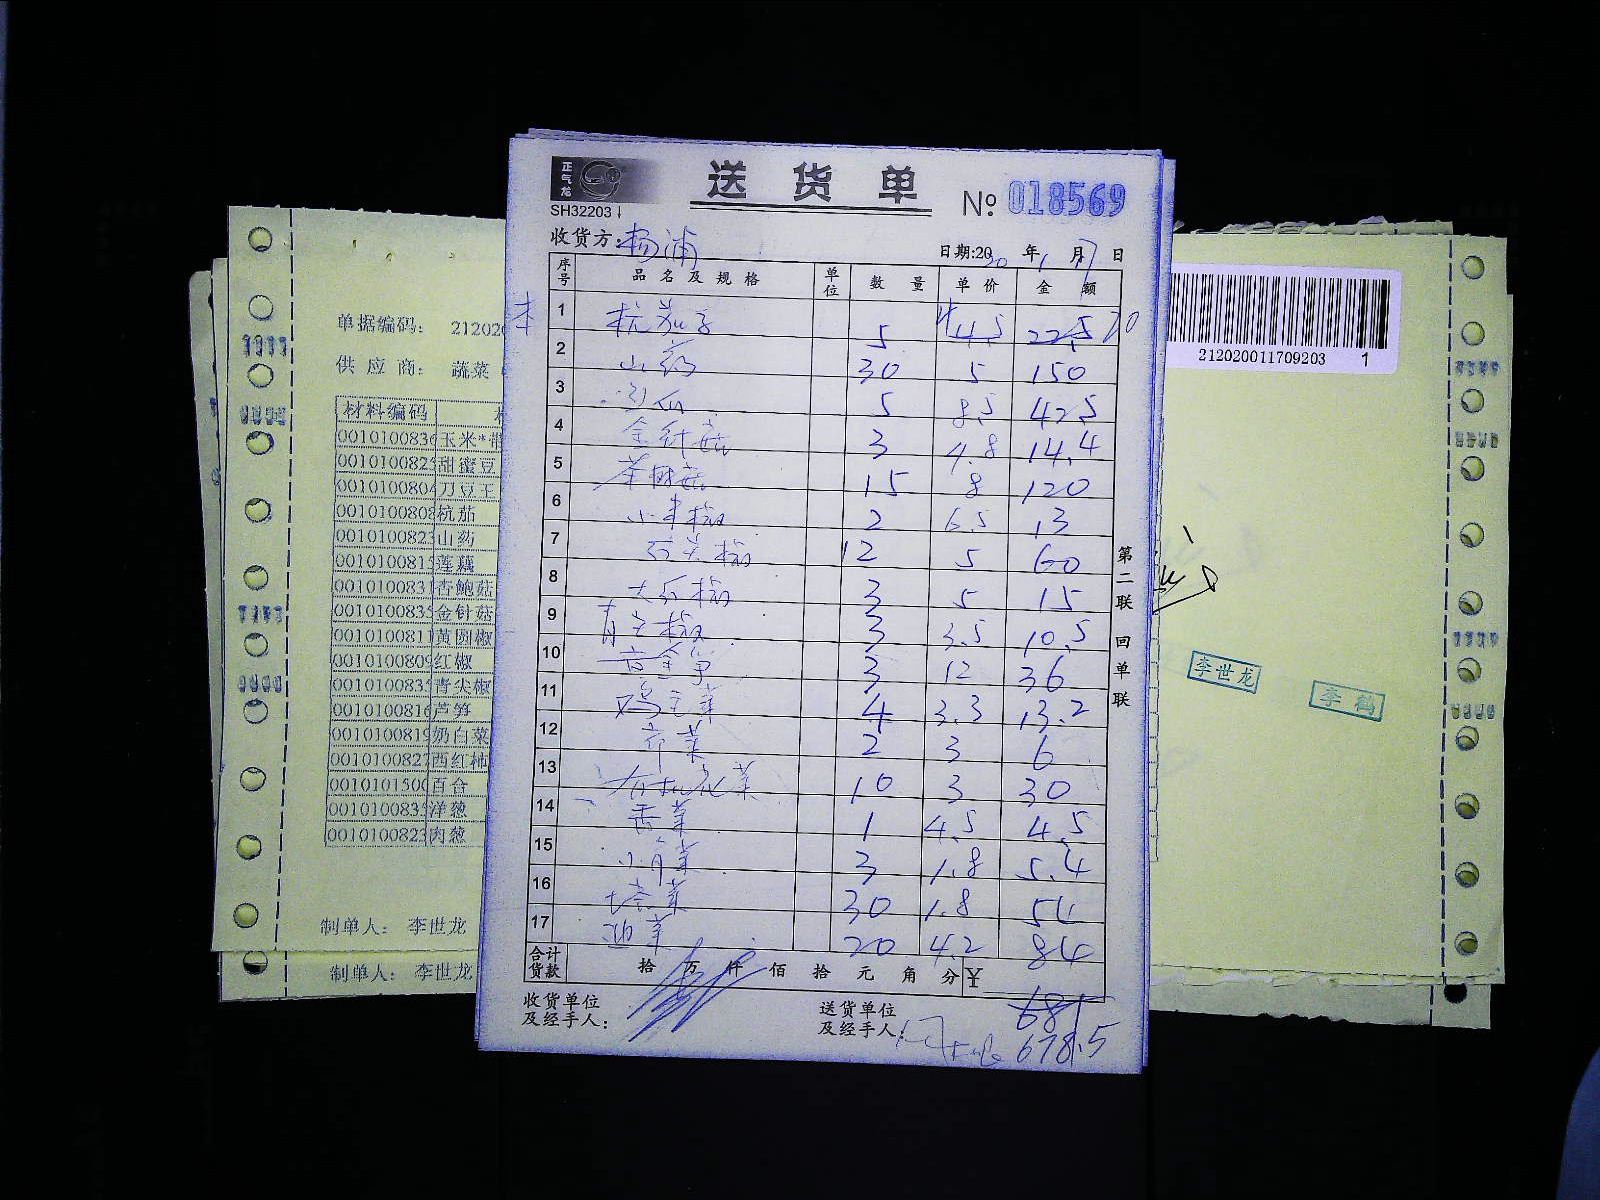 正气龙
SH32203
送货单
№ 018569
收货方: 杨浦
日期:2020年1月17日
序号 品名及规格 单位 数量 单价 金额
本
1 杭茄子 5 4 4.5 22.5 20
2 山药 30 5 150
3 瓜 5 8.5 42.5
4 金针菇 3 4.8 14.4
5 茶树菇 15 8 120
6 小米椒 2 6.5 13
7 红尖椒 12 5 60
8 大红椒 3 5 15
9 青尖椒 3 3.5 10.5
10 3 12 36
11 鸡毛菜 4 3.3 13.2
12 芹菜 2 3 6
13 有机花菜 10 3 30
14 香菜 1 4.5 4.5
15 小青菜 3 1.8 5.4
16 30 1.8 54
17 菜 20 4.2 84
合计货款 拾 万 仟 佰 拾 元 角 分 ¥
681
678.5
收货单位及经手人:
送货单位及经手人:
第二联 回单联
单据编码: 21202
供应商: 蔬菜
材料编码
001010083 玉米*带
001010082 甜蜜豆
001010080 刀豆王
001010080 杭茄
001010082 山药
001010081 莲藕
001010083 杏鲍菇
001010083 金针菇
001010081 黄圆椒
001010080 红椒
001010083 青尖椒
001010081 芦笋
001010081 奶白菜
001010082 西红柿
001010150 百合
001010083 洋葱
001010082 肉葱
制单人: 李世龙
制单人: 李世龙
212020011709203 1
李世龙
李鹤